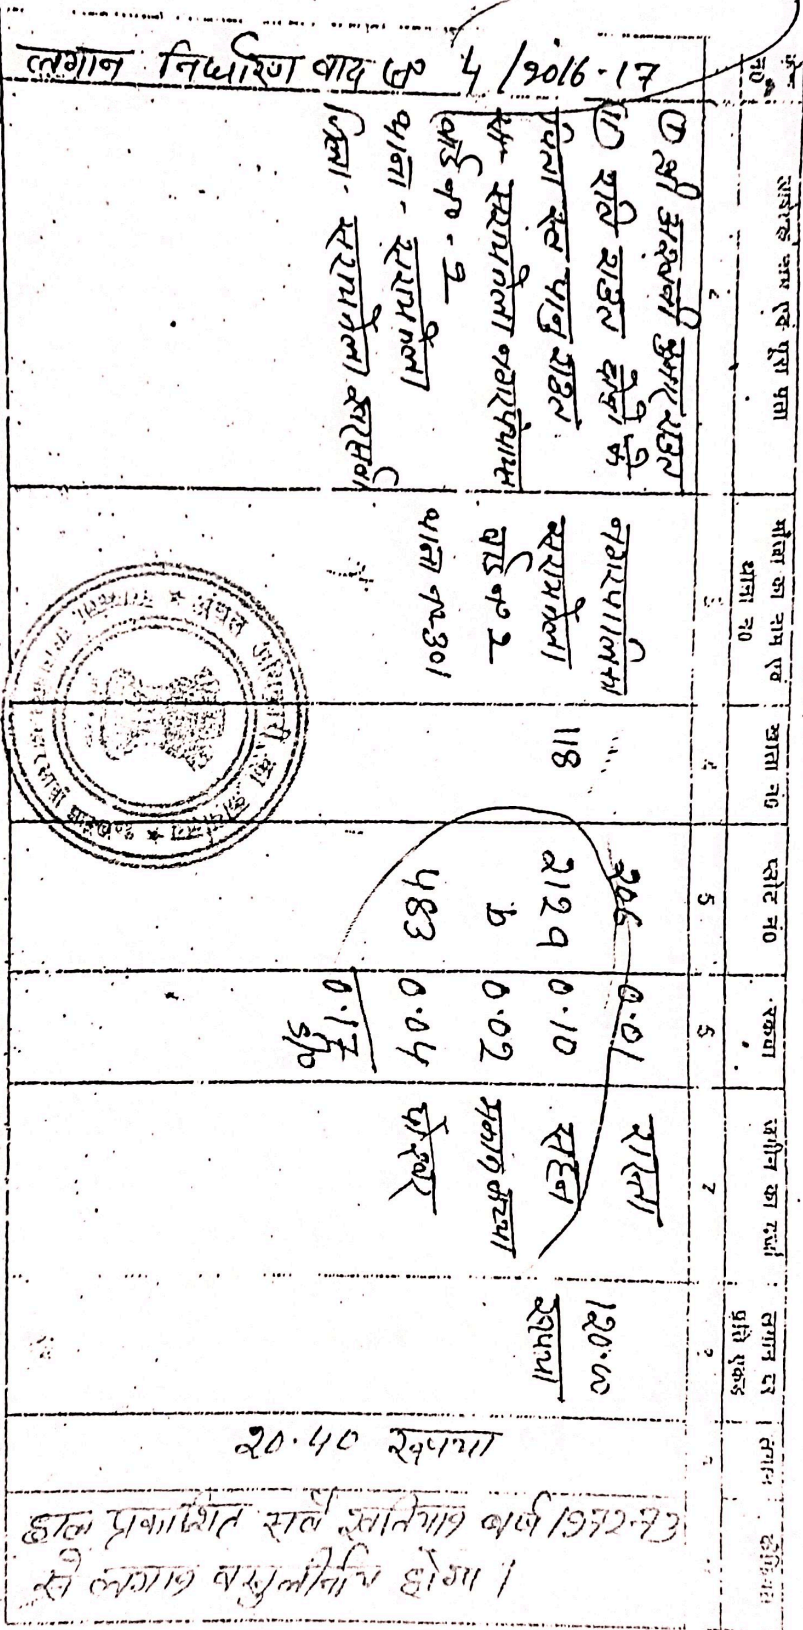 लगान निर्धारण वाद सं० 4/2016-17
क्रम सं०
आवेदक नाम एवं पूरा पता
मौजा का नाम एवं थाना नं०
खाता नं०
प्लोट नं०
रकबा
जमीन का दर्जा
लगान दर प्रति एकड़
लगान
2
3
4
5
5
7
① श्री अश्वनी कुमार राउत
② रवि राउत दोनों के
पिता स्व० भानु राउत
सा०- सरायकेला नगरपंचायत
वार्ड नं० - 2
थाना - सरायकेला
जिला - सरायकेला खरसावां
नगरपालिका
सरायकेला
वार्ड नं० 2
थाना नं०-301
118
206 0.01 रास्ता
2129 0.10 सहन
b 0.02 मकान कच्चा
483 0.04 पोखर
0.17
120.00
रुपया
20.40 रुपया
हाल प्रकाशित सर्वे खतियान वर्ष 1972-73
से लगान वसूलनीय होगा।
अंचल अधिकारी का कार्यालय